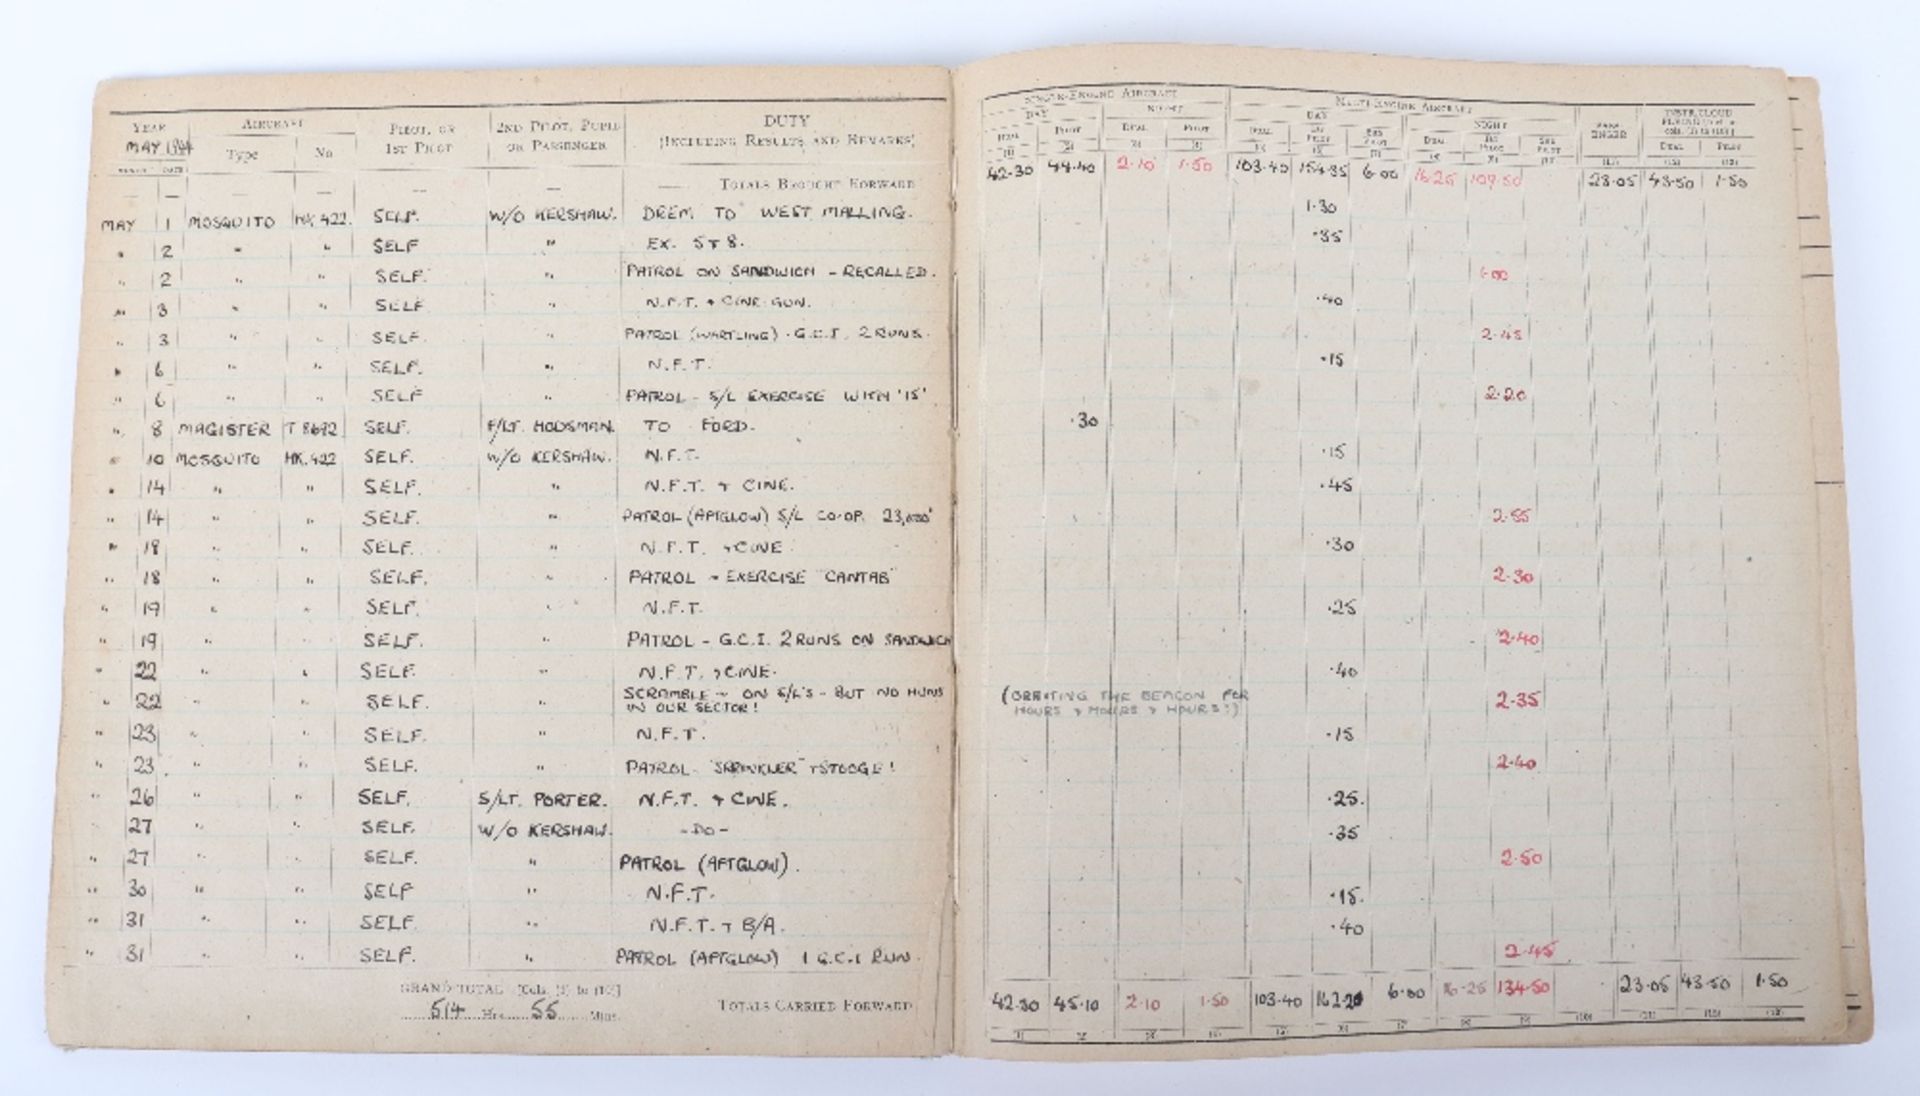 YEAR AIRCRAFT PILOT, OR 2ND PILOT, PUPIL DUTY
MAY 1944 Type No. 1ST PILOT OR PASSENGER (INCLUDING RESULTS AND REMARKS)
MONTH DATE
— — — — — —— TOTALS BROUGHT FORWARD
MAY 1 MOSQUITO HK.422. SELF. W/O KERSHAW. DREM TO WEST MALLING.
" 2 " " SELF " EX. 5 + 8.
" 2 " " SELF. " PATROL ON SANDWICH - RECALLED.
" 3 " " SELF " N.F.T. + CINE GUN.
" 3 " " SELF. " PATROL (WARTLING) - G.C.I. 2 RUNS.
" 6 " " SELF. " N.F.T.
" 6 " " SELF " PATROL - S/L EXERCISE WITH '15'
" 8 MAGISTER T 8692 SELF. F/LT. HODSMAN. TO FORD.
" 10 MOSQUITO HK.422 SELF. W/O KERSHAW. N.F.T.
" 14 " " SELF. " N.F.T. + CINE.
" 14 " " SELF. " PATROL (AFTGLOW) S/L CO-OP. 23,000'
" 18 " " SELF. " N.F.T. + CINE.
" 18 " " SELF. " PATROL - EXERCISE "CANTAB"
" 19 " " SELF. " N.F.T.
" 19 " " SELF. " PATROL - G.C.I. 2 RUNS ON SANDWICH
" 22 " " SELF. " N.F.T. + CINE.
" 22 " " SELF. " SCRAMBLE - ON S/L'S - BUT NO HUNS
IN OUR SECTOR!
" 23 " " SELF. " N.F.T.
" 23 " " SELF. " PATROL - "SPRINKLER" + STOOGE!
" 26 " " SELF. S/LT. PORTER. N.F.T. + CINE.
" 27 " " SELF. W/O KERSHAW. - DO -
" 27 " " SELF. " PATROL (AFTGLOW).
" 30 " " SELF " N.F.T.
" 31 " " SELF. " N.F.T. + B/A.
" 31 " " SELF. " PATROL (AFTGLOW) 1 G.C.I RUN.
GRAND TOTAL [Cols. (1) to (10)]
514 Hrs. 55 Mins. TOTALS CARRIED FORWARD
SINGLE-ENGINE AIRCRAFT MULTI-ENGINE AIRCRAFT
DAY NIGHT DAY NIGHT PASS-ENGER INSTR/CLOUD FLYING
DUAL PILOT DUAL PILOT DUAL 1ST PILOT 2ND PILOT DUAL 1ST PILOT 2ND PILOT DUAL PILOT
42.30 44.40 2.10 1.50 103.40 154.35 6.00 16.25 109.50 23.05 43.50 1.50
1.30
.35
1.00
.40
2.45
.15
2.20
.30
.15
.45
2.55
.30
2.30
.25
2.40
.40
(ORBITING THE BEACON FOR 2.35
HOURS + HOURS + HOURS!)
.15
2.40
.25.
.35
2.50
.15.
.40
2.45
42.30 45.10 2.10 1.50 103.40 162.20 6.00 16.25 134.50 23.05 43.50 1.50